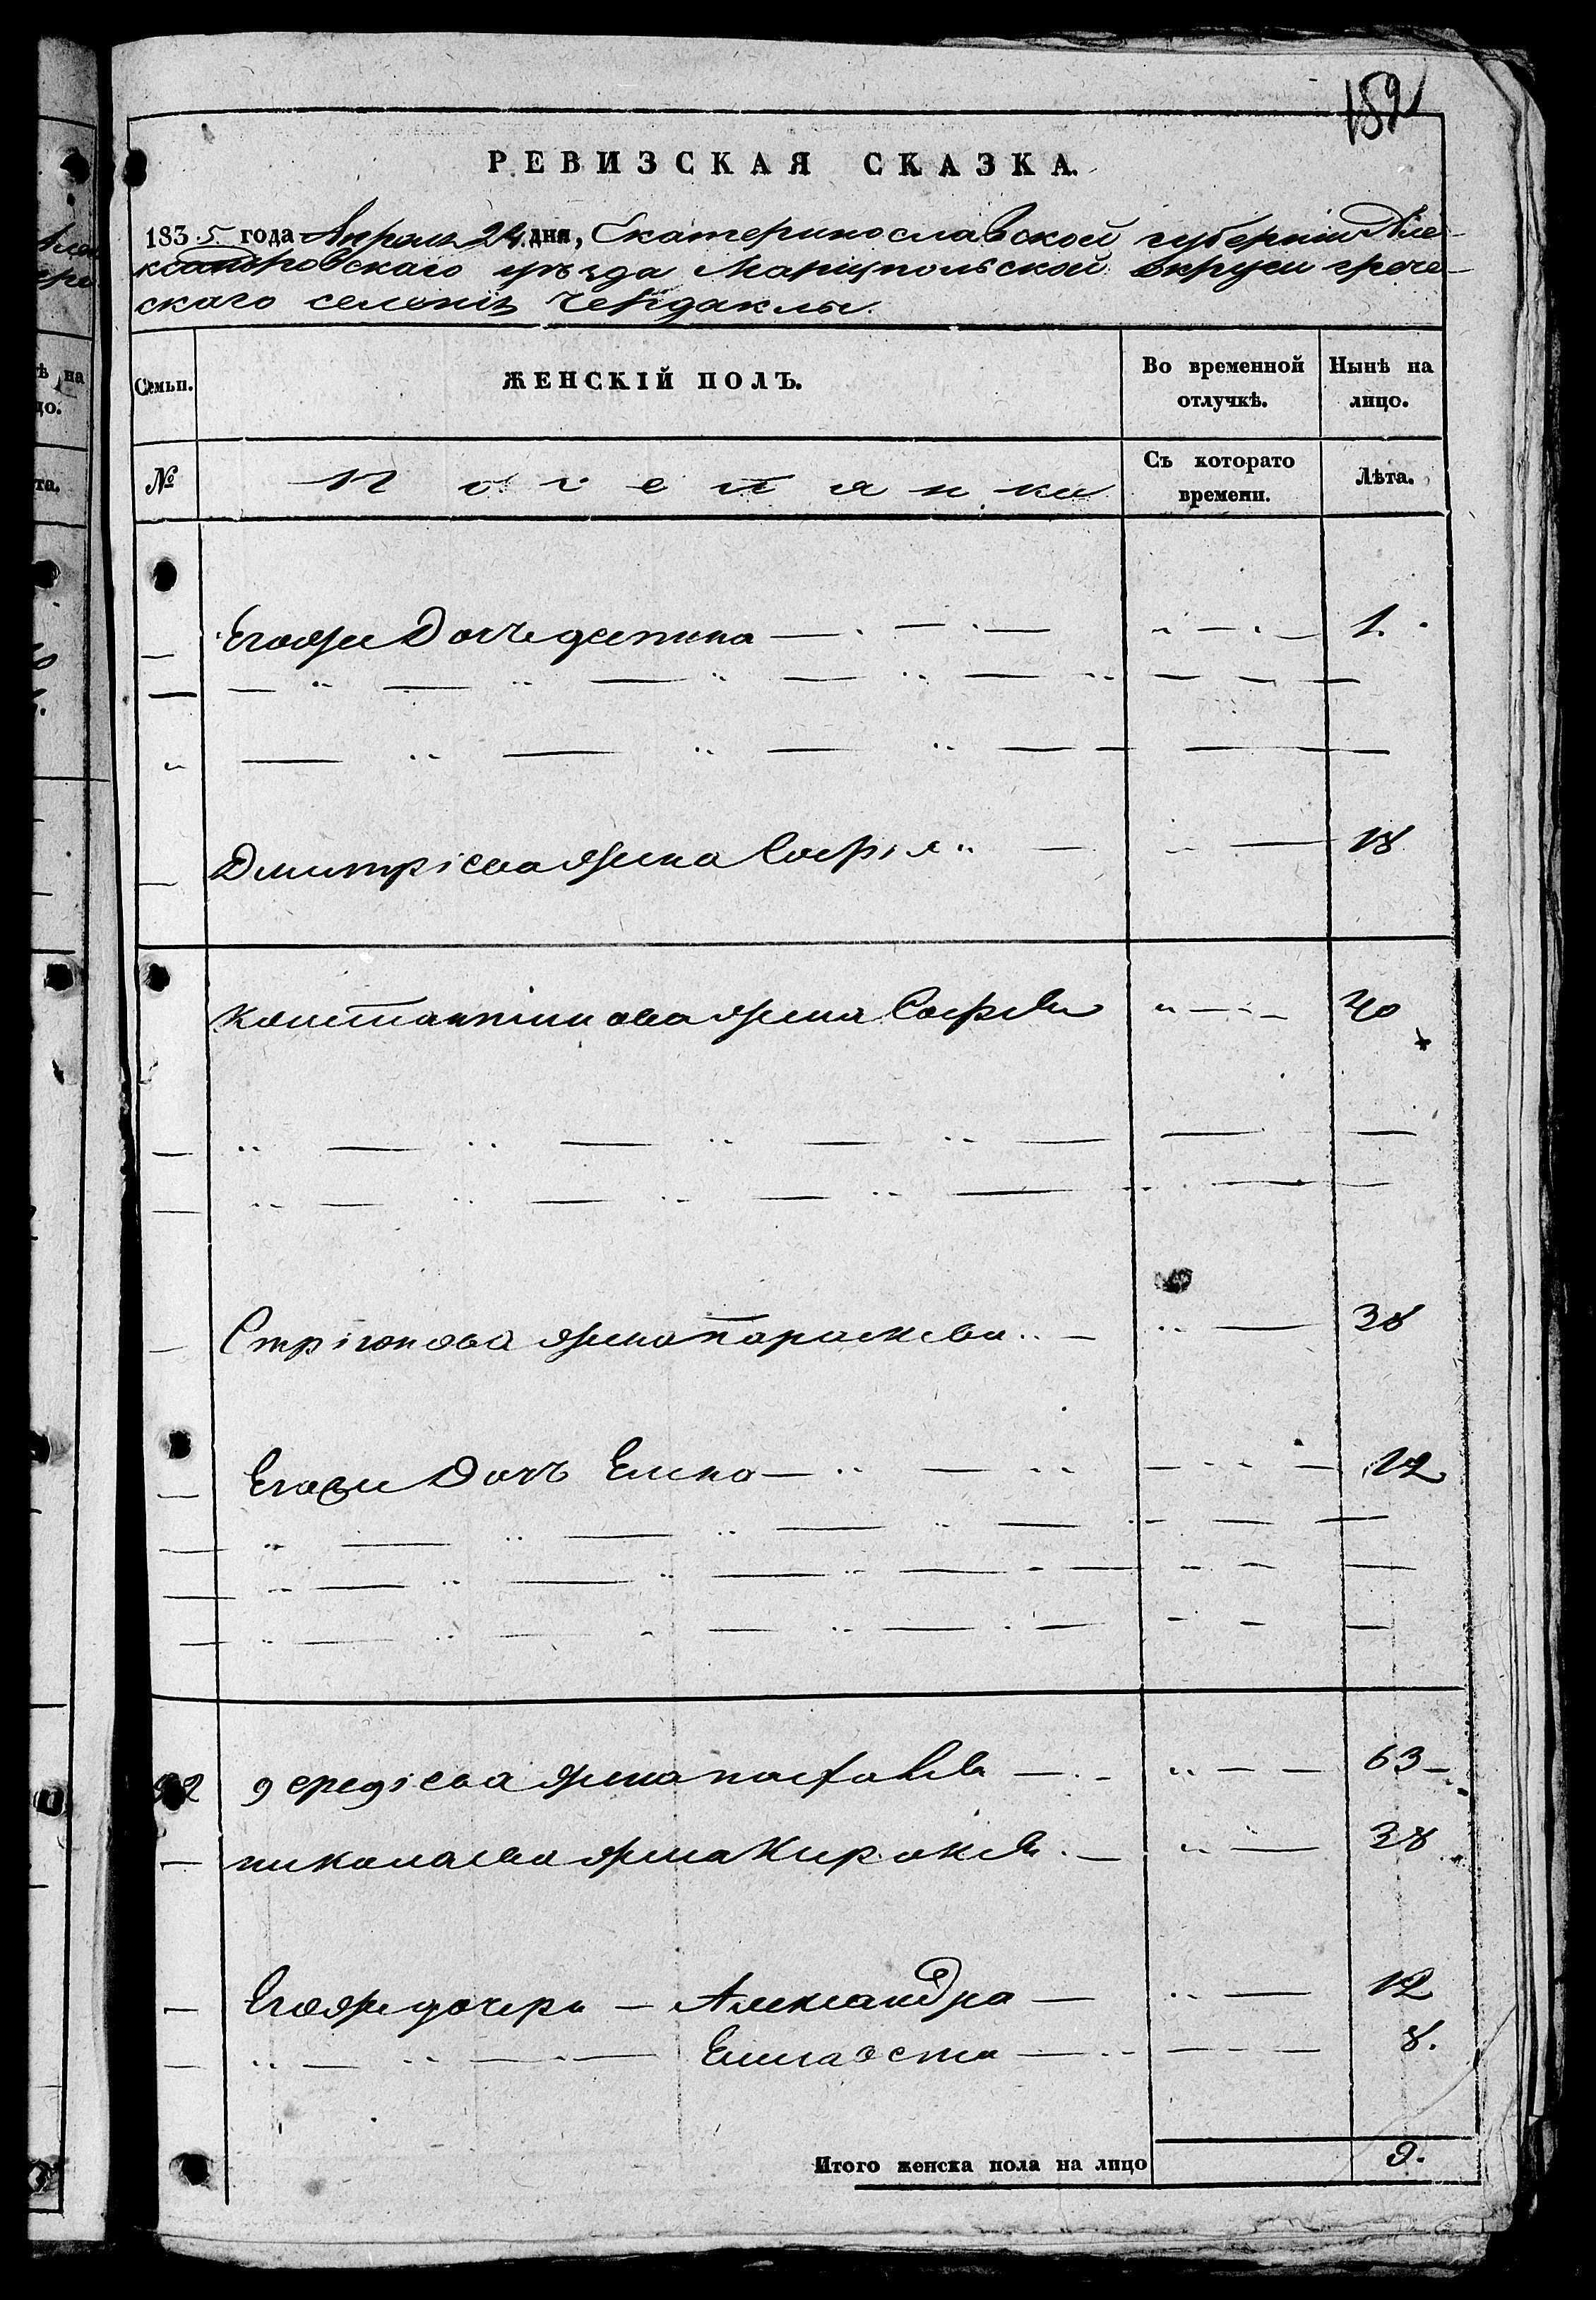 159
РЕВИЗСКАЯ СКАЗКА.
1835 года Апреля 24 дня, Екатеринославской губернiи Але-
ксандровскаго уѣзда Марiупольской округи грече-
скаго селенiя Чердаклы.
Семьи. ЖЕНСКIЙ ПОЛЪ. Во временной отлучкѣ. Нынѣ на лицо.
№ Поселянки Съ которато времени. Лѣта.
Егоже Дочь 1.
Дмитрiева жена Софiя 18
Константинова жена Софiя 40
Стрiонова жена Параскева 38
Егоже Дочь Елена 12
92 жена 63
Николаева жена Киракiя 38
Егоже дочери Александра 12
Елисавета 8.
Итого женска пола на лицо 9.